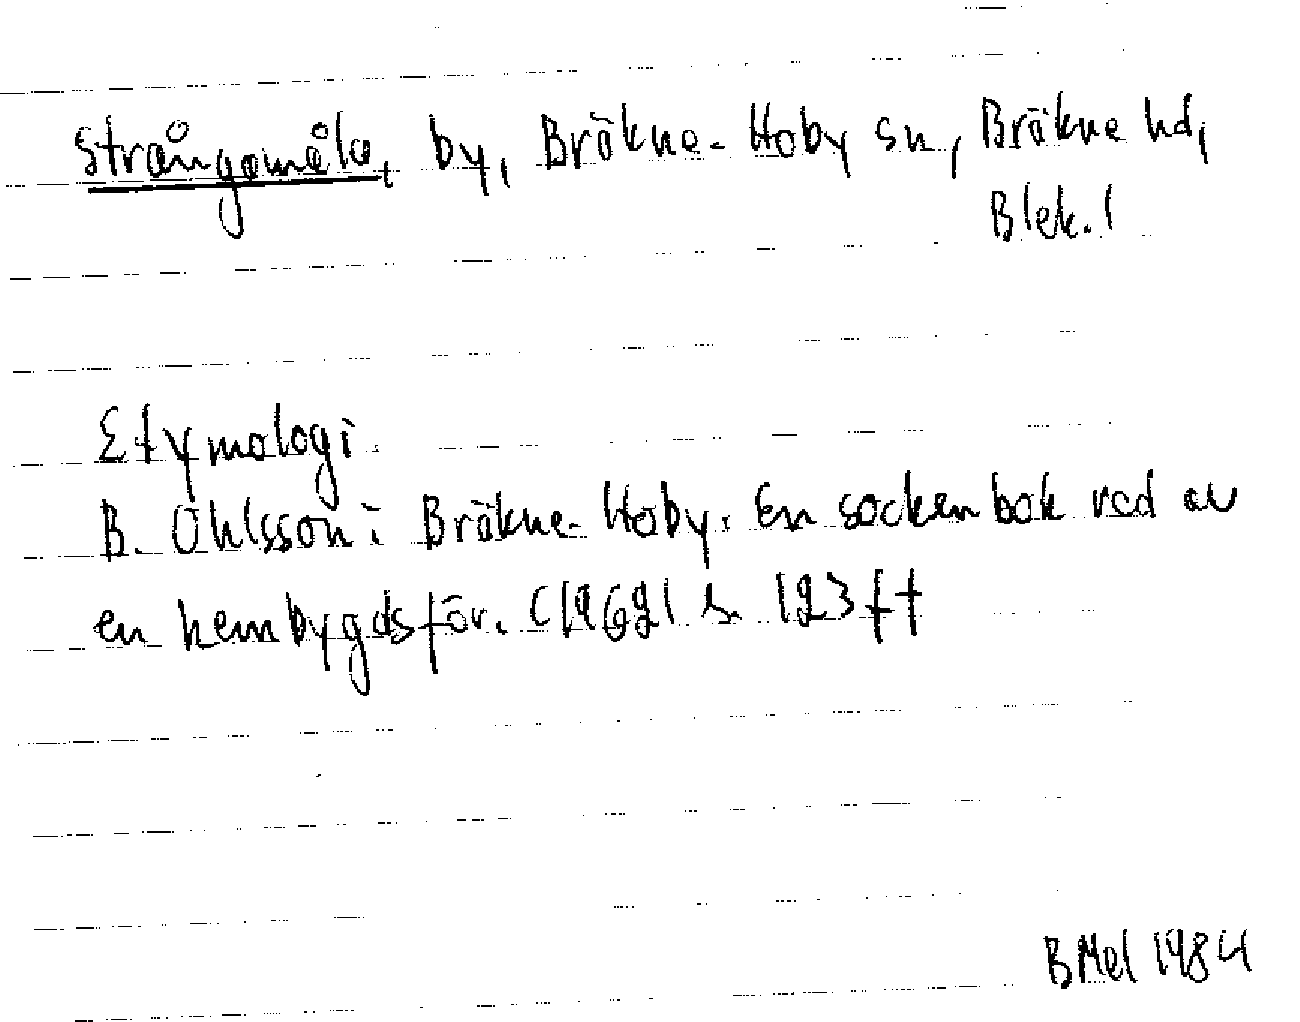 Strångamåla, by, Bräkne-Hoby sn, Bräkne hd,
Blek. l
Etymologi.
B. Ohlsson i Bräkne-Hoby. En sockenbok red av
en hembygdsför. (1962) s. 123 ff
BMel 1984